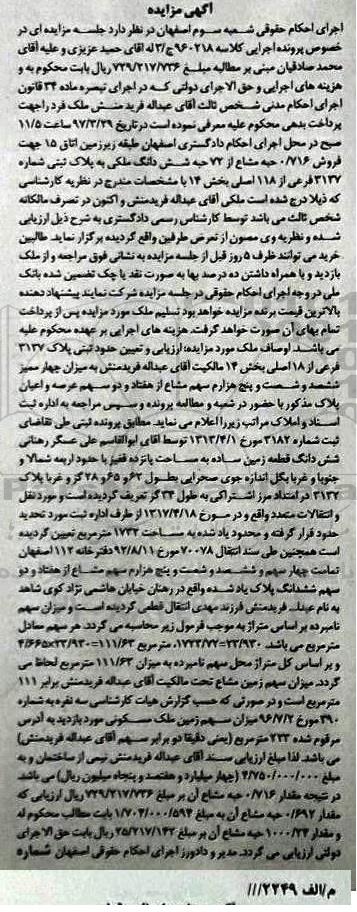 آگهی مزایده
اجرای احکام حقوقی شعبه سوم اصفهان در نظر دارد جلسه مزایده ای در
خصوص پرونده اجرایی کلاسه ۹۶۰۲۱۸ ج/۳ له اقای حمید عزیزی و علیه آقای
محمد صادقیان مبنی بر مطالبه مبلغ ۷۲۹/۲۱۷/۷۳۶ ریال بابت محکوم به و
هزینه های اجرایی و حق الاجرای دولتی که در اجرای تبصره ماده ۳۴ قانون
اجرای احکام مدنی شخص ثالث آقای عبداله فریدمنش ملک فرد راجهت
پرداخت بدهی محکوم علیه معرفی نموده است در تاریخ ۹۷/۳/۲۹ ساعت ۱۱/۵
صبح در محل اجرای احکام دادگستری اصفهان طبقه زیرزمین اتاق ۱۵ جهت
فروش ۰/۷۱۶ حبه مشاع از ۷۲ حبه شش دانگ ملکی به پلاک ثبتی شماره
۳۱۳۷ فرعی از ۱۱۸ اصلی بخش ۱۴ با مشخصات مندرج در نظریه کارشناسی
که ذیلا درج شده است ملکی آقای عبداله فریدمنش و اکنون در تصرف مالکانه
شخص ثالث می باشد توسط کارشناس رسمی دادگستری به شرح ذیل ارزیابی
شده و نظریه وی مصون از تعرض طرفین واقع گردیده برگزار نماید. طالبین
خرید می توانند ظرف ۵ روز قبل از جلسه مزایده به نشانی فوق مراجعه و از ملک
بازدید و با همراه داشتن ده درصد بها به صورت نقد یا چک تضمین شده بانک
ملی در وجه اجرای احکام حقوقی در جلسه مزایده شرکت نمایند پیشنهاد دهنده
بالاترین قیمت برنده مزایده خواهد بود تسلیم ملک مورد مزایده پس از پرداخت
تمام بهای آن صورت خواهد گرفت. هزینه های اجرایی بر عهده محکوم علیه
می باشد. اوصاف ملک مورد مزایده: ارزیابی و تعیین حدود ثبتی پلاک ۳۱۳۷
فرعی از ۱۸ اصلی بخش ۱۴ مالکیت آقای عبداله فریدمنش به میزان چهار ممیز
ششصد و شصت و پنج هزارم سهم مشاع از هفتاد و دو سهم عرصه و اعیان
پلاک مذکور با حضور در شعبه و مطالعه پرونده و سپس مراجعه به اداره ثبت
اسناد و املاک مراتب زیر را اعلام می نماید. مطابق پرونده ثبتی طی تقاضای
ثبت شماره ۳۱۸۲ مورخ ۱۳۱۳/۴/۱ توسط آقای ابوالقاسم علی عسگر رهنانی
شش دانگ قطعه زمین ساده به مساحت پانزده قفیز با حدود اربعه شمالا و
جنوبا و غربا بگل اندازه جوی صحرایی بطول ۶۲ و ۶۵ و ۲۸ گز و غربا پلاک
۳۱۳۲ در امتداد مرز اشتراکی به طول ۳۴ گز تعریف گردیده است و مورد نقل
و انتقالات متعدد واقع و در مورخ ۱۳۱۷/۴/۱۸ از طرف اداره ثبت مورد تحدید
حدود قرار گرفته و محدود یاد شده به مساحت ۱۷۳۲ مترمربع تعیین گردیده
است همچنین طی سند انتقال ۷۰۰۷۸ مورخ ۹۲/۸/۱۱ دفترخانه ۱۱۲ اصفهان
تمامت چهار سهم و ششصد و شصت و پنج هزارم سهم مشاع از هفتاد و دو
سهم ششدانگ پلاک یاد شده واقع در رهنان خیابان هاشمی نژاد کوی شاهد
به نام عبداله فریدمنش فرزند مهدی انتقال قطعی گردیده است و میزان سهم
نامبرده بر اساس متراژ به موجب فرمول زیر محاسبه می گردد. هر سهم معادل
مترمربع می باشد. ۲۳/۹۳۰=۱۷۲۳:۷۲. مترمربع ۱۱۱/۶۳=۲۳/۹۳۰×۴/۶۶۵
و بر اساس کل متراژ محل سهم نامبرده به میزان ۱۱۱/۶۳ مترمربع لحاظ می
گردد. میزان سهم زمین مشاع تحت مالکیت آقای عبداله فریدمنش برابر ۱۱۱
مترمربع است و در صورتی که حسب گزارش هیات کارشناسی سه نفره به شماره
۳۹۰ مورخ ۹۶/۷/۲ میزان سهم زمین ملک مسکونی مورد بازدید به آدرس
مرقوم شده ۲۲۳ مترمربع (یعنی دقیقا دو برابر سهم آقای عبداله فریدمنش)
می باشد. لذا مبلغ ارزیابی سند آقای عبداله فریدمنش نیمی از ساختمان و به
مبلغ ۴/۷۵۰/۰۰۰/۰۰۰ (چهار میلیارد و هفتصد و پنجاه میلیون ریال) می باشد
در نتیجه مقدار ۰/۷۱۶ حبه مشاع آن بر مبلغ ۷۲۹/۲۱۷/۷۳۶ ریال ارزیابی که
مقدار ۰/۶۹۲ حبه مشاع آن به مبلغ ۱/۷۰۴/۰۰۰/۵۹۴ بابت مطالب محکوم له
و مقدار ۱۰۰۰/۲۴ حبه مشاع آن بر مبلغ ۲۵/۲۱۷/۱۴۲ ریال بابت حق الاجرای
دولتی ارزیابی می گردد. مدیر و دادورز اجرای احکام حقوقی اصفهان شماره
م/الف ۲۲۴۹///